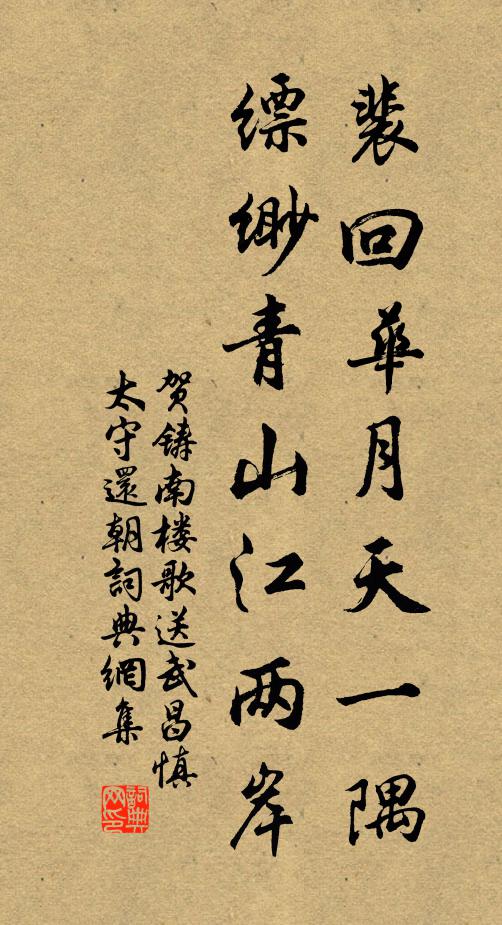 裴回華月天一隅
缥缈青山江两岸
贺铸南楼歌送武昌慎
太守還朝詞典網集
詞典網印